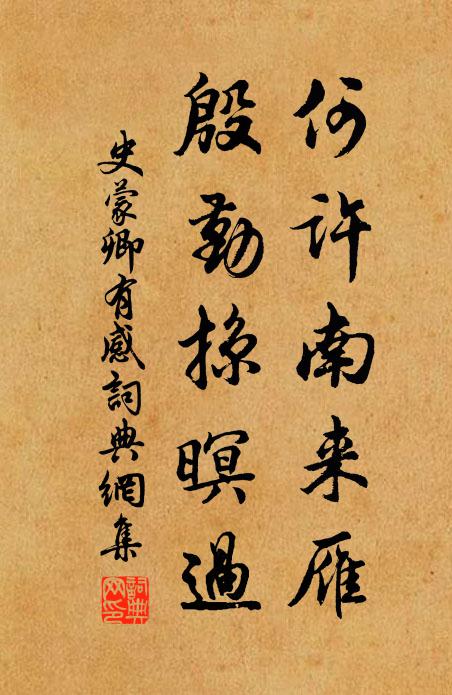 何许南来雁
殷勤掠暝過
史蒙卿有感詞典網集
詞典网印